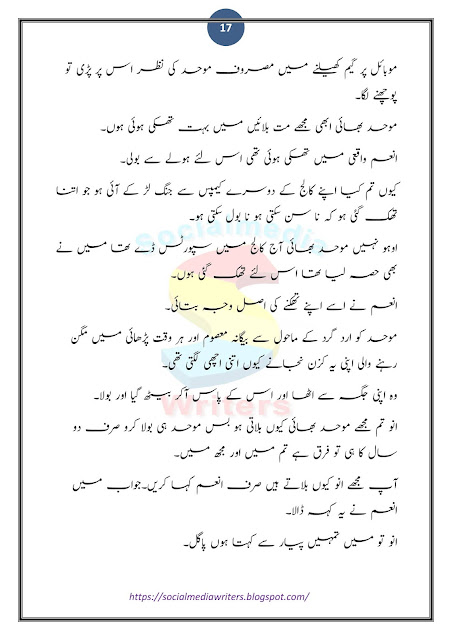 17
موبائل پر گیم کھیلنے میں مصروف موحد کی نظر اس پر پڑی تو
پوچھنے لگا۔
موحد بھائی ابھی مجھے مت بلائیں میں بہت تھکی ہوئی ہوں۔
انعم واقعی میں تھکی ہوئی تھی اس لئے ہولے سے بولی۔
کیوں تم کیا اپنے کالج کے دوسرے کیمپس سے جنگ لڑ کے آئی ہو جو اتنا
تھک گئی ہو کہ نا سن سکتی ہو نا بول سکتی ہو۔
اوہو نہیں موحد بھائی آج کالج میں سپورٹس ڈے تھا میں نے
بھی حصہ لیا تھا اس لئے تھک گئی ہوں۔
انعم نے اسے اپنے تھکنے کی اصل وجہ بتائی۔
موحد کو ارد گرد کے ماحول سے بیگانہ معصوم اور ہر وقت پڑھائی میں مگن
رہنے والی اپنی یہ کزن نجانے کیوں اتنی اچھی لگتی تھی۔
وہ اپنی جگہ سے اٹھا اور اس کے پاس آکر بیٹھ گیا اور بولا۔
انو تم مجھے موحد بھائی کیوں بلاتی ہو بس موحد ہی بولا کرو صرف دو
سال کا ہی تو فرق ہے تم میں اور مجھ میں۔
آپ مجھے انو کیوں بلاتے ہیں صرف انعم کہا کریں۔جواب میں
انعم نے یہ کہہ ڈالا۔
انو تو میں تمہیں پیار سے کہتا ہوں پاگل۔
Socialmedia
S
Writers
https://socialmediawriters.blogspot.com/